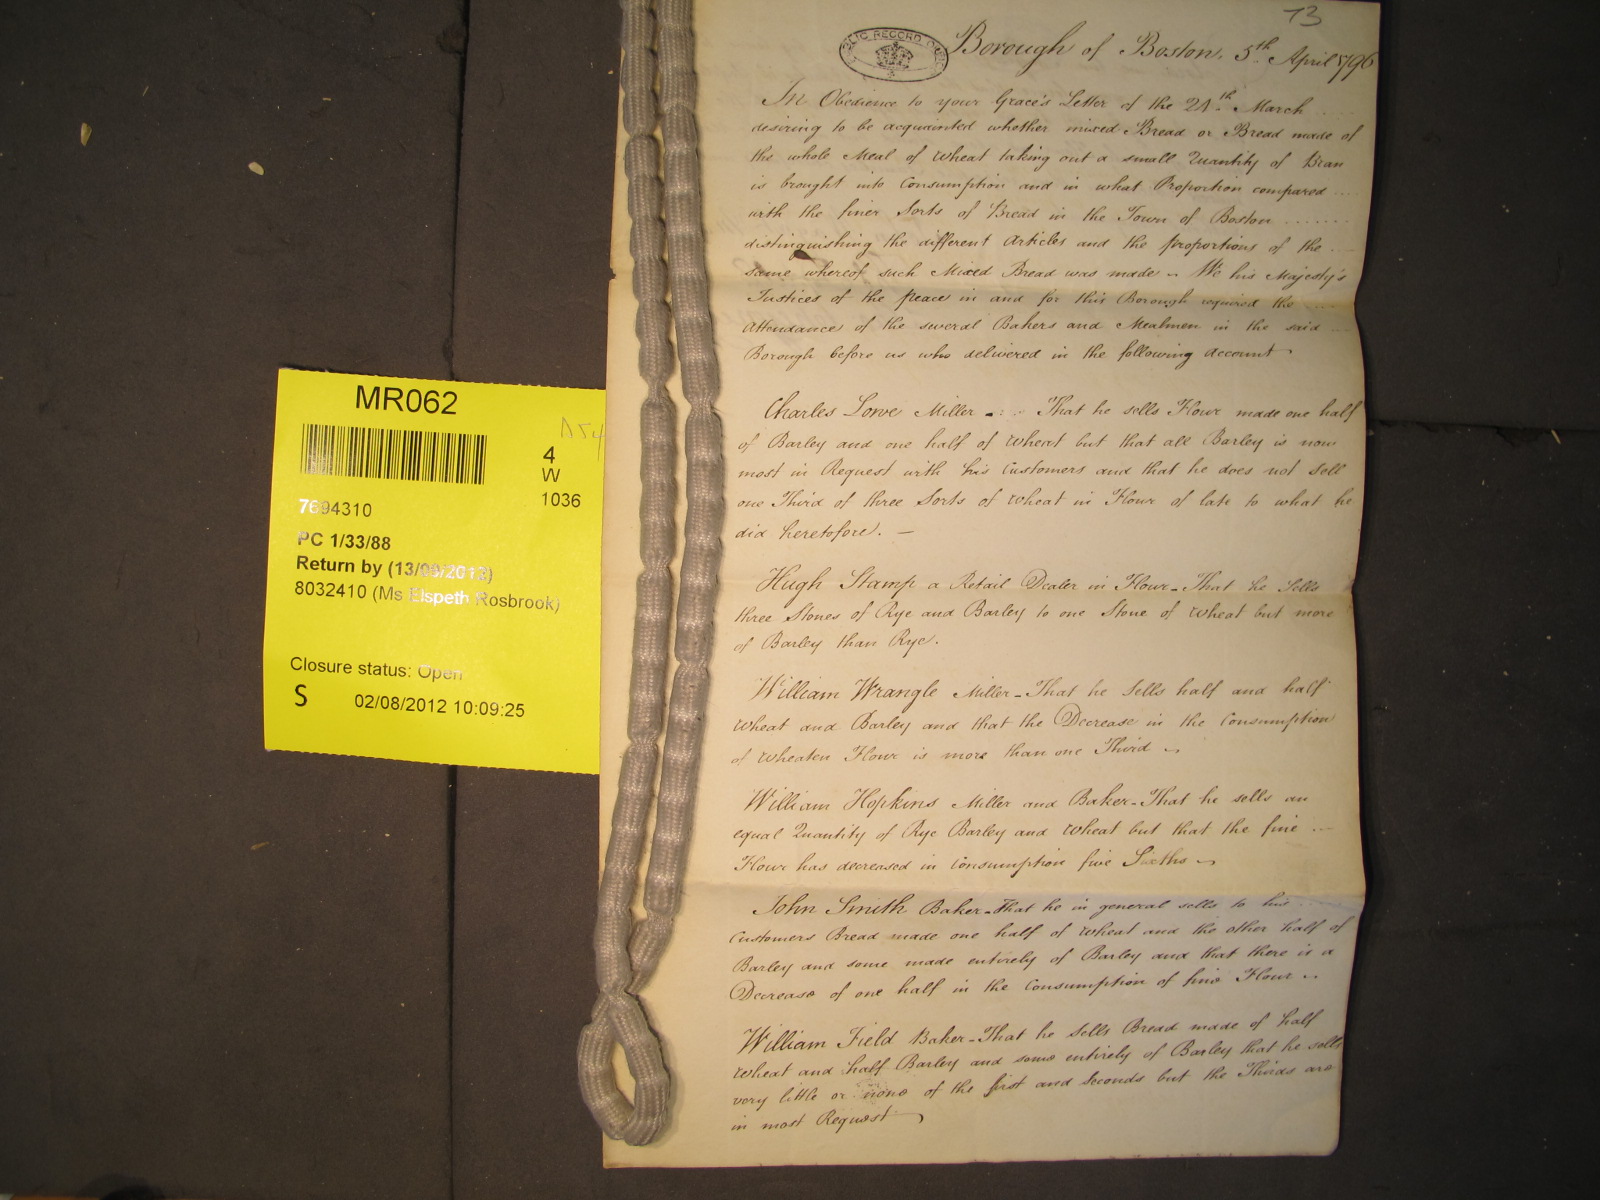 MR062
4
W
1036
7694310
PC 1/33/88
Return by (13/09/2012)
8032410 (Ms Elspeth Rosbrook)
Closure status: Open
S 02/08/2012 10:09:25
73
PUBLIC RECORD OFFICE
Borough of Boston, 5th April 1796
In Obedience to your Grace's Letter of the 21th March
desiring to be acquainted whether mixed Bread or Bread made of
the whole Meal of wheat taking out a small Quantity of Bran
is brought into Consumption and in what Proportion compared
with the finer Sorts of Bread in the Town of Boston
distinguishing the different Articles and the proportions of the
same whereof such Mixed Bread was made - We his Majesty's
Justices of the peace in and for this Borough required the
Attendance of the several Bakers and Mealmen in the said
Borough before us who delivered in the following account
Charles Lowe Miller - That he sells Flour made one half
of Barley and one half of wheat but that all Barley is now
most in Request with his Customers and that he does not sell
one Third of three Sorts of wheat in Flour of late to what he
did heretofore. -
Hugh Stamp a Retail Dealer in Flour - That he Sells
three Stones of Rye and Barley to one Stone of wheat but more
of Barley than Rye.
William Wrangle Miller - That he Sells half and half
wheat and Barley and that the Decrease in the Consumption
of wheaten Flour is more than one Third
William Hopkins Miller and Baker - That he sells an
equal Quantity of Rye Barley and wheat but that the fine
Flour has decreased in Consumption five Sixths
John Smith Baker - That he in general sells to his
Customers Bread made one half of wheat and the other half of
Barley and some made entirely of Barley and that there is a
Decrease of one half in the Consumption of fine Flour
William Field Baker - That he Sells Bread made of half
wheat and half Barley and some entirely of Barley that he sells
very little or none of the first and Seconds but the Thirds are
in most Request